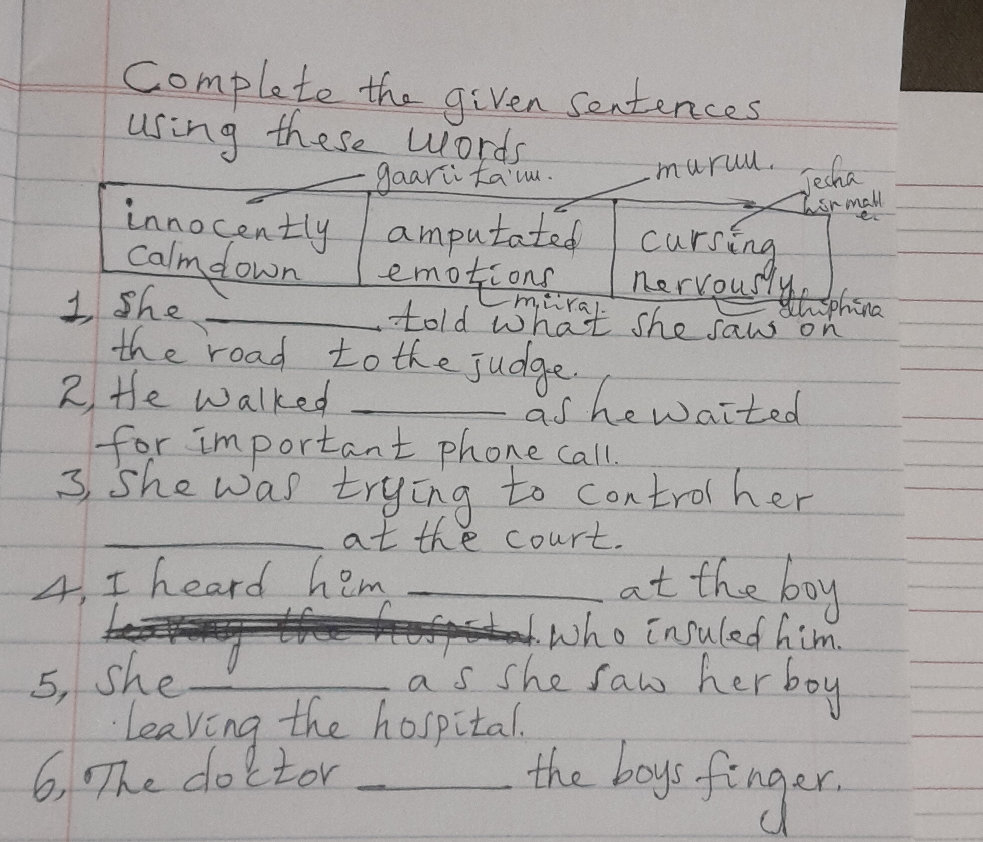 Complete the given sentences
using these words
gaarii ta'uu. muruu. jecha
innocently amputated cursing
calmdown emotions nervously
miira dhiphina
1, She ______ told what she saw on
the road to the judge.
2, He walked ______ as he waited
for important phone call.
3, She was trying to control her
______ at the court.
4, I heard him ______ at the boy
who insuled him.
5, She ______ as she saw her boy
leaving the hospital.
6, The doctor ______ the boys finger.